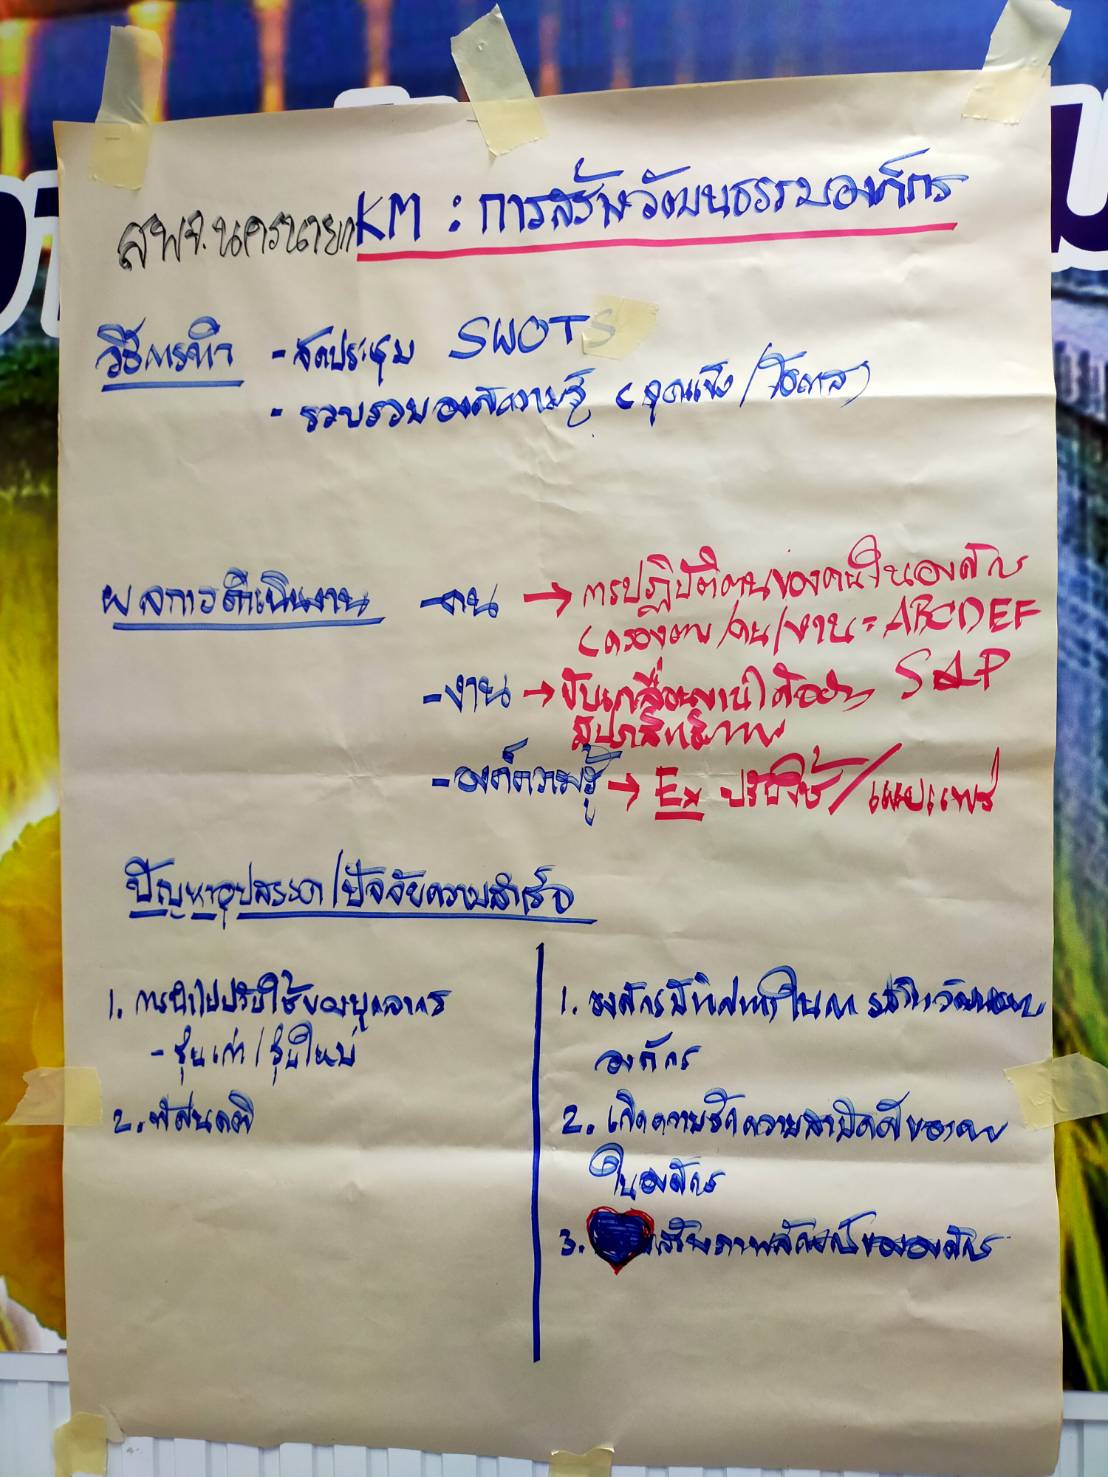 สพจ.นครนายก KM : การสร้างวัฒนธรรมองค์กร
วิธีการทำ - จัดประชุม SWOTS
- รวบรวมองค์ความรู้ (จุดแข็ง /
ผลการดำเนินงาน - คน → การปฏิบัติตนของคนในองค์กร
(ครองตน/คน/งาน = ABCDEF
- งาน → ขับเคลื่อนงานได้อย่าง SAP
- องค์ความรู้ → Ex ปรับใช้ / เผยแพร่
ปัญหาอุปสรรค / ปัจจัยความสำเร็จ
1. การนำไปปรับใช้ของบุคลากร
- รุ่นเก่า / รุ่นใหม่
2. ทัศนคติ
1. องค์กรมีทิศทางในการสร้างวัฒนธรรม
องค์กร
2. เกิดความรักความสามัคคีของคน
ในองค์กร
3. สร้างภาพลักษณ์ขององค์กร